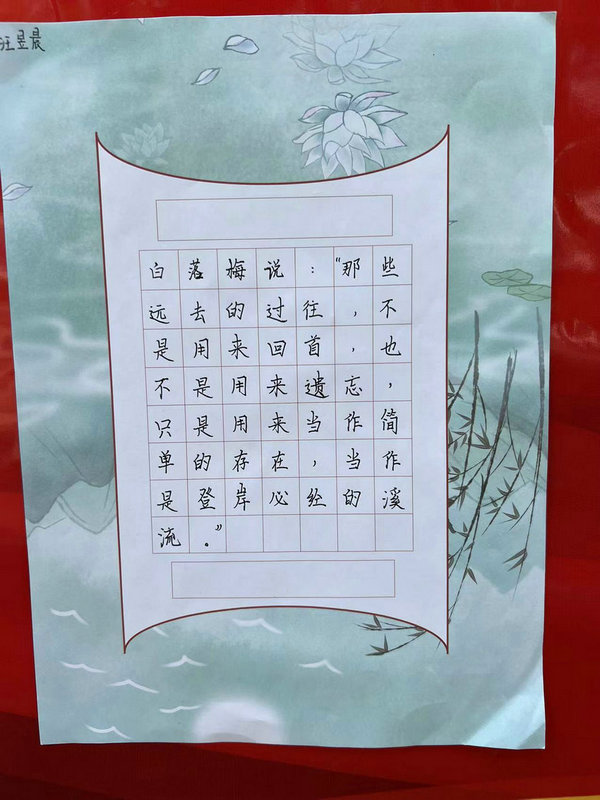 汪昱晨
白落梅说：“那些
远去的过往，不
是用来回首，也
不是用来遗忘，
只是用来当作简
单的存在，当作
是登岸必经的溪
流。”